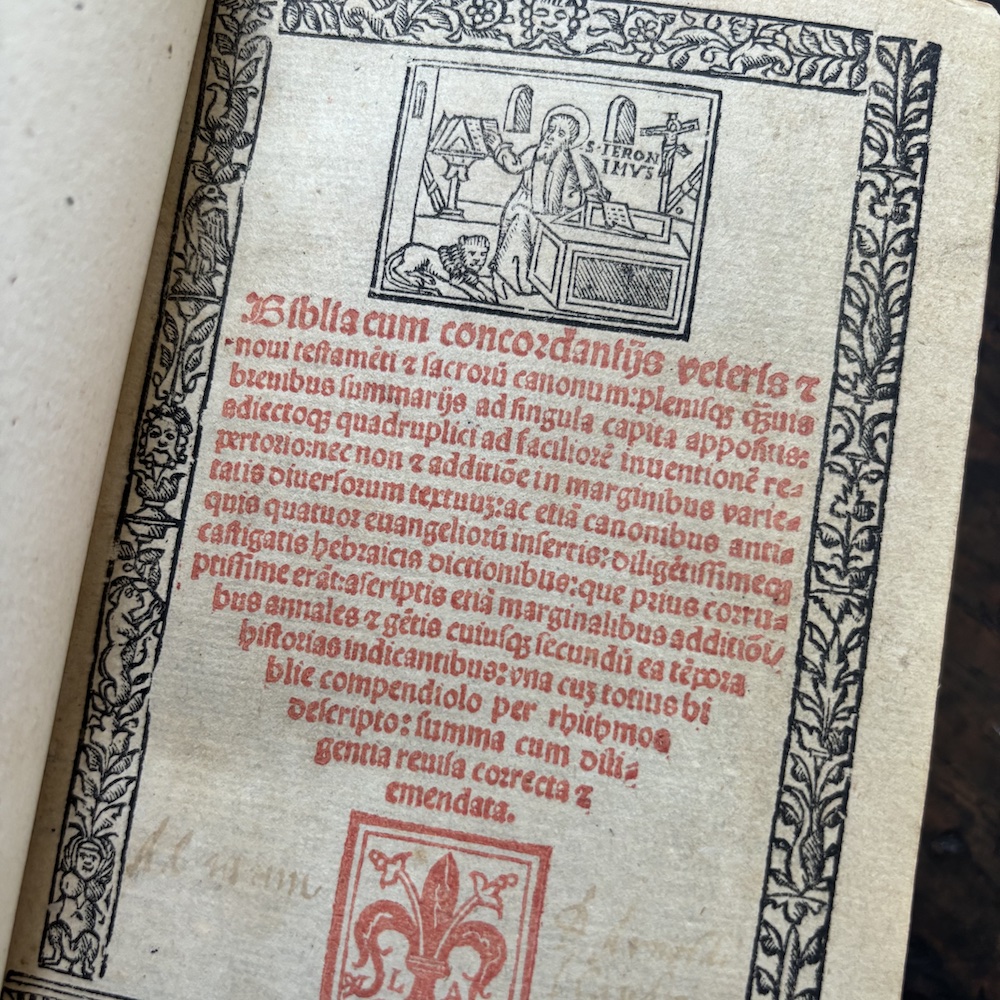 S·IERON
IMVS
Biblia cum concordantijs veteris ⁊
noui testamēti ⁊ sacrorū canonum: plenisqꝫ qꝫuis
breuibus summarijs ad singula capita appositis:
adiectoqꝫ quadruplici ad faciliorē inuentionē re⸗
pertorio: nec non ⁊ additiōe in marginibus varie⸗
tatis diuersorum textuuꝫ: ac etiā canonibus anti⸗
quis quatuor euangeliorū insertis: diligētissimeqꝫ
castigatis hebraicis dictionibus: que prius corru⸗
ptissime erāt: ascriptis etiā marginalibus additiōi/
bus annales ⁊ gētis cuiusqꝫ secundū ea tēpora
historias indicantibus: vna cuꝫ totius bi
blie compendiolo per rhythmos
descripto: summa cum dili⸗
gentia reuisa correcta ⁊
emendata.
L A